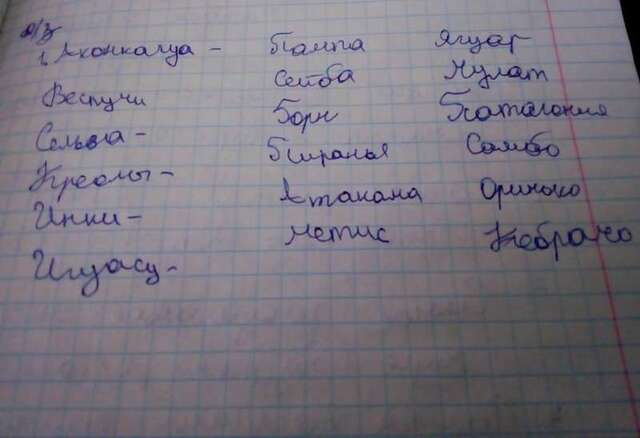 д/з
1. Аконкагуа - Пампа Ягуар
Веспучи Сейба Мулат
Сельва - Борн Патагония
Креолы - Пиранья Самбо
Инки - Атакама Ориноко
Игуасу - Метис Кебрачо